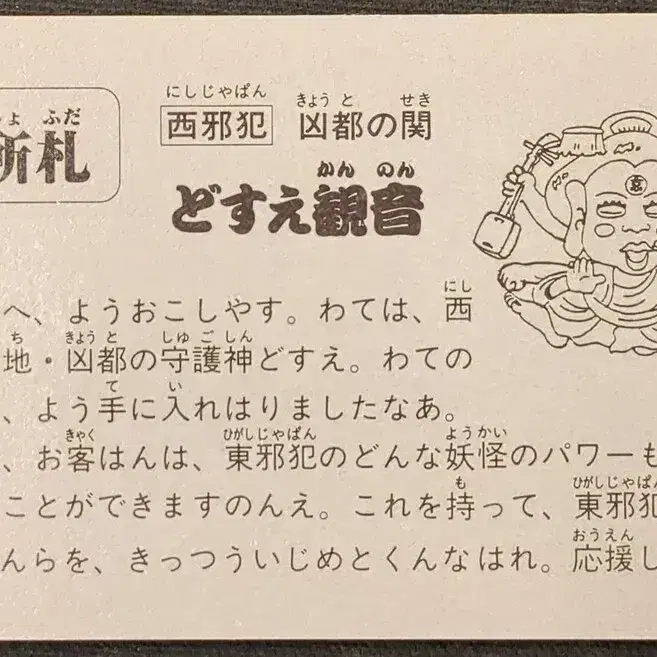 所札
西邪犯 凶都の関
どすえ観音
へ、ようおこしやす。わては、西
地・凶都の守護神どすえ。わての
、よう手に入れはりましたなあ。
、お客はんは、東邪犯のどんな妖怪のパワーも
ことができますのんえ。これを持って、東邪犯
んらを、きっつういじめとくんなはれ。応援し